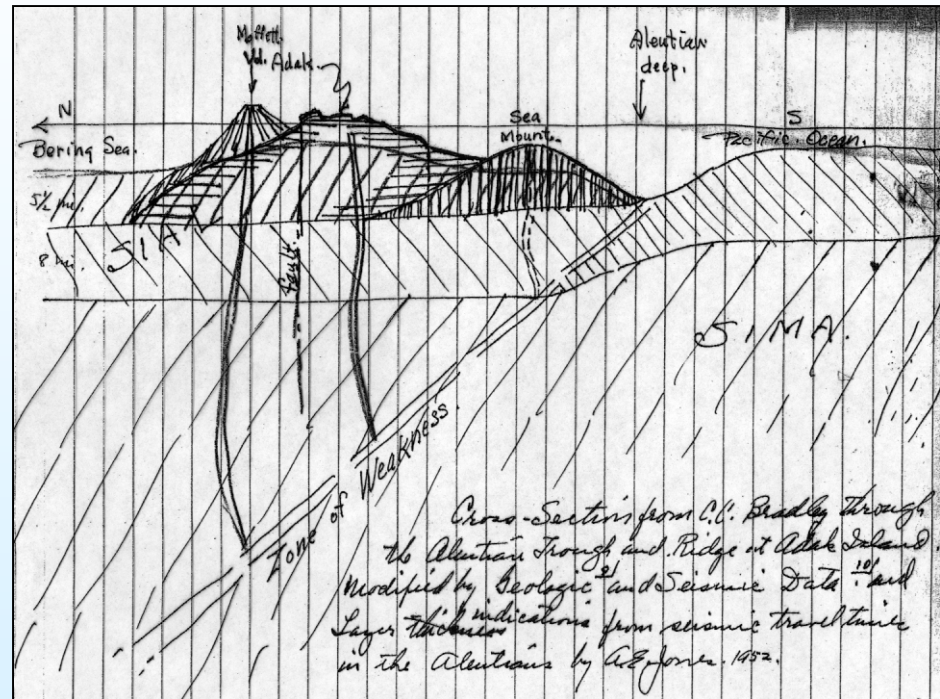 Moffett
Vol. Adak.
Aleutian
deep.
N
S
Bering Sea.
Sea
Mount.
Pacific Ocean.
5½ mi.
8 mi.
SIA
Fault.
SIMA.
Zone of Weakness
Cross-Section from C.C. Bradley through
the Aleutian Trough and Ridge at Adak Island
modified by Geologic 9/ and Seismic Data 10/ and
Layer indications from seismic travel times
in the Aleutians by A.E. Jones. 1952.